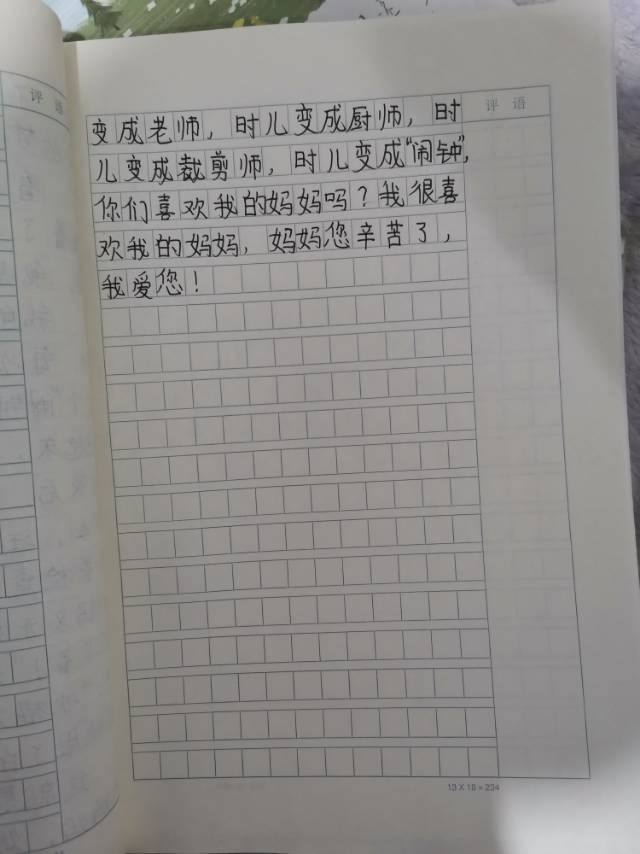 评语
评语
变成老师，时儿变成厨师，时
儿变成裁剪师，时儿变成“闹钟”，
你们喜欢我的妈妈吗？我很喜
欢我的妈妈，妈妈您辛苦了，
我爱您！
13×18=234